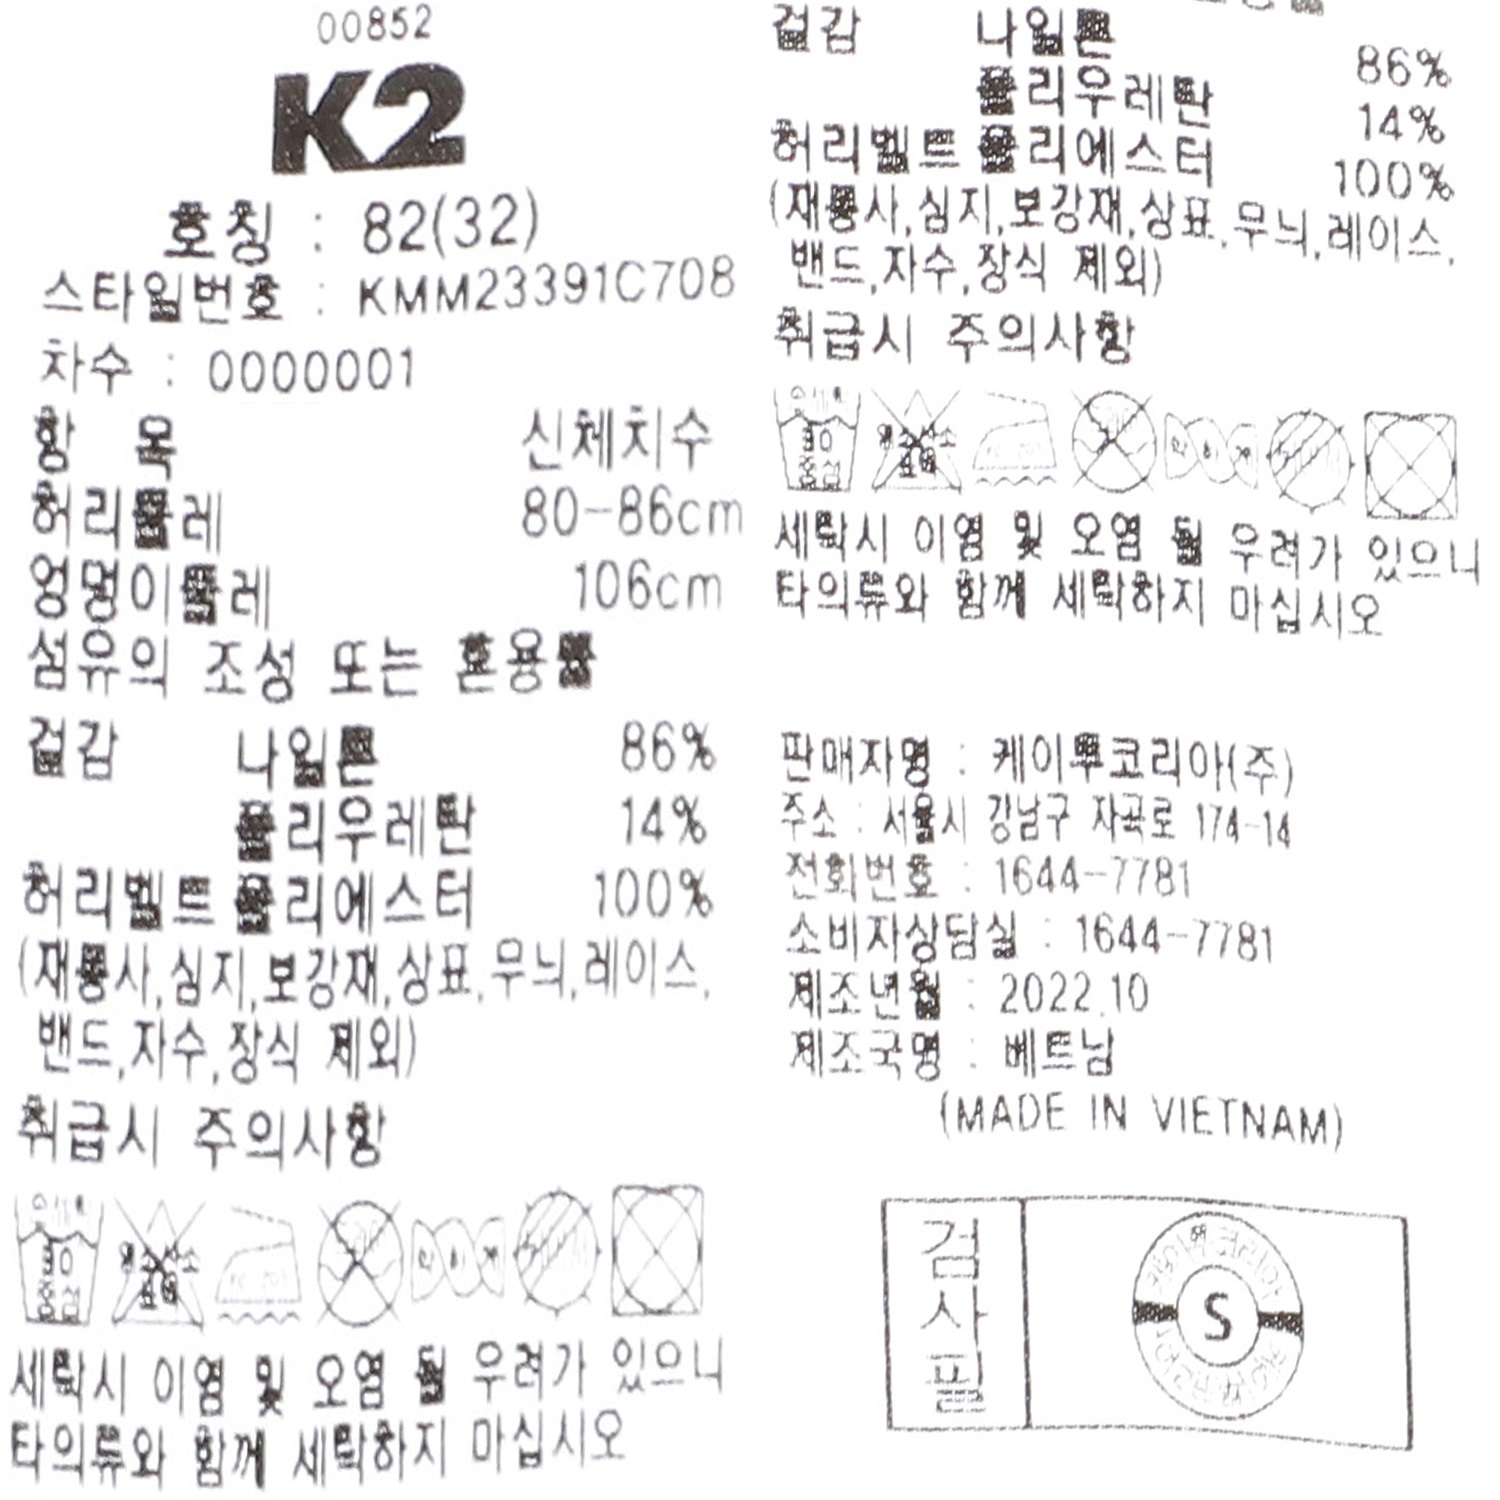 00852
K2
호칭 : 82(32)
스타일번호 : KMM23391C708
차수 : 0000001
항 목 신체치수
허리둘레 80-86cm
엉덩이둘레 106cm
섬유의 조성 또는 혼용률
겉감 나일론 86%
폴리우레탄 14%
허리벨트 폴리에스터 100%
(재봉사,심지,보강재,상표,무늬,레이스,
밴드,자수,장식 제외)
취급시 주의사항
세탁시 이염 및 오염 될 우려가 있으니
타의류와 함께 세탁하지 마십시오
겉감 나일론 86%
폴리우레탄 14%
허리벨트 폴리에스터 100%
(재봉사,심지,보강재,상표,무늬,레이스,
밴드,자수,장식 제외)
취급시 주의사항
세탁시 이염 및 오염 될 우려가 있으니
타의류와 함께 세탁하지 마십시오
판매자명 : 케이투코리아(주)
주소 : 서울시 강남구 자곡로 174-14
전화번호 : 1644-7781
소비자상담실 : 1644-7781
제조년월 : 2022.10
제조국명 : 베트남
(MADE IN VIETNAM)
검사필
S